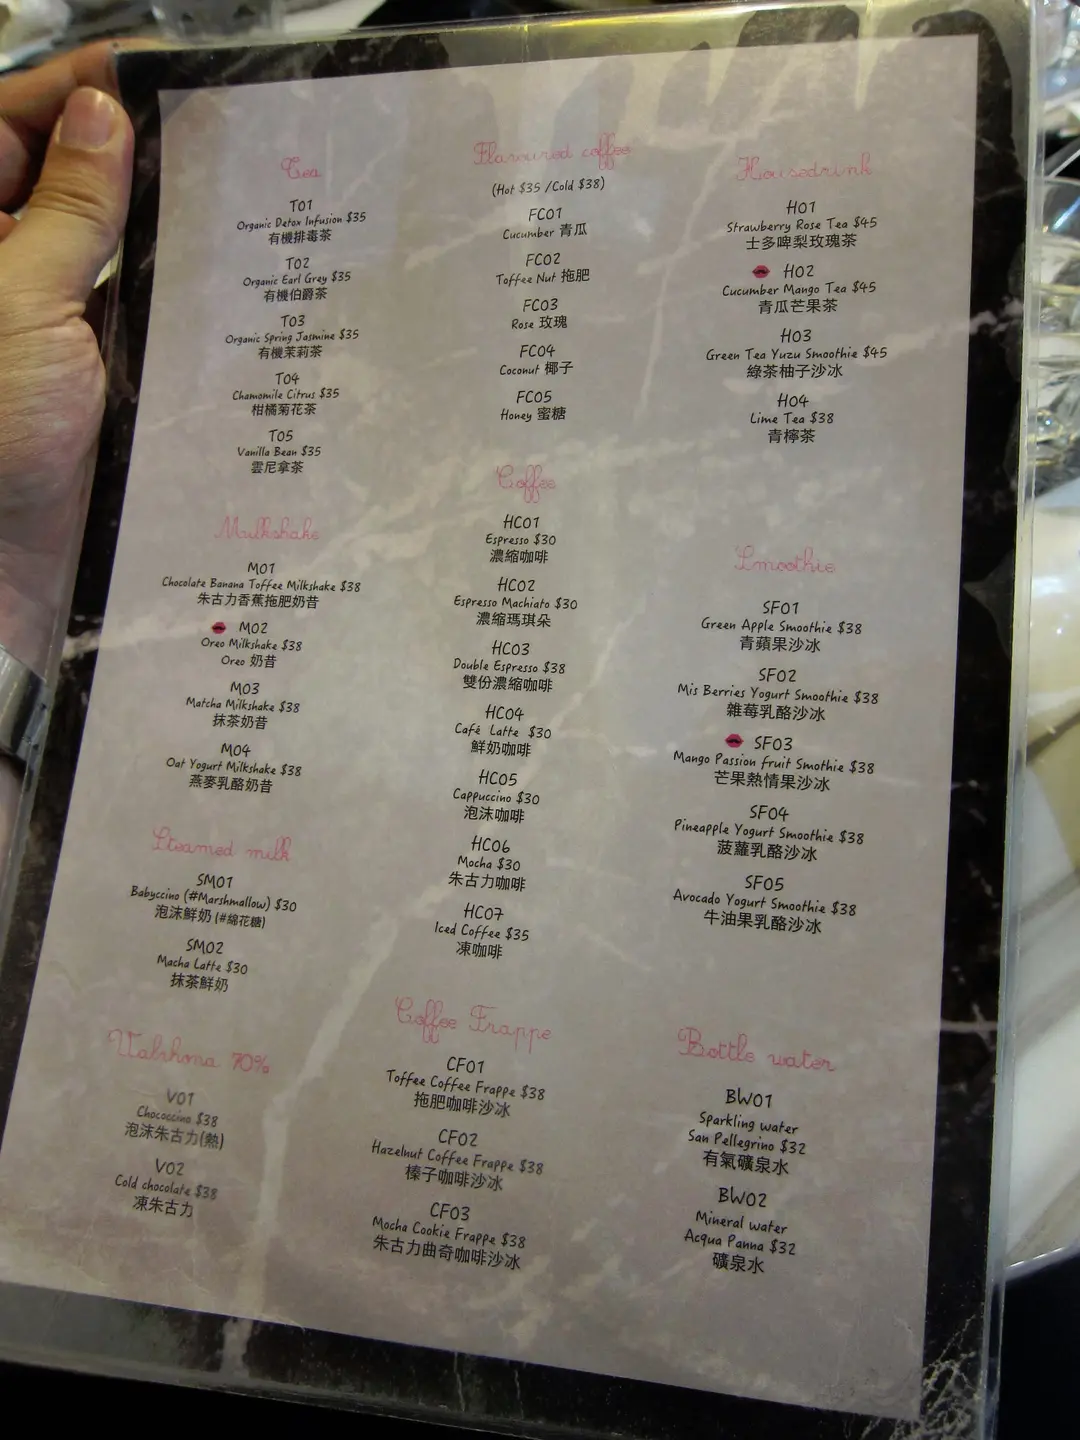 Tea
T01
Organic Detox Infusion $35
有機排毒茶
T02
Organic Earl Grey $35
有機伯爵茶
T03
Organic Spring Jasmine $35
有機茉莉茶
T04
Chamomile Citrus $35
柑橘菊花茶
T05
Vanilla Bean $35
雲尼拿茶
Milkshake
M01
Chocolate Banana Toffee Milkshake $38
朱古力香蕉拖肥奶昔
M02
Oreo Milkshake $38
Oreo 奶昔
M03
Matcha Milkshake $38
抹茶奶昔
M04
Oat Yogurt Milkshake $38
燕麥乳酪奶昔
Steamed milk
SM01
Babyccino (#Marshmallow) $30
泡沫鮮奶 (#綿花糖)
SM02
Macha Latte $30
抹茶鮮奶
Valrhona 70%
V01
Chococcino $38
泡沫朱古力(熱)
V02
Cold chocolate $38
凍朱古力
Flavoured coffee
(Hot $35 /Cold $38)
FC01
Cucumber 青瓜
FC02
Toffee Nut 拖肥
FC03
Rose 玫瑰
FC04
Coconut 椰子
FC05
Honey 蜜糖
Coffee
HC01
Espresso $30
濃縮咖啡
HC02
Espresso Machiato $30
濃縮瑪琪朵
HC03
Double Espresso $38
雙份濃縮咖啡
HC04
Café Latte $30
鮮奶咖啡
HC05
Cappuccino $30
泡沫咖啡
HC06
Mocha $30
朱古力咖啡
HC07
Iced Coffee $35
凍咖啡
Coffee Frappe
CF01
Toffee Coffee Frappe $38
拖肥咖啡沙冰
CF02
Hazelnut Coffee Frappe $38
榛子咖啡沙冰
CF03
Mocha Cookie Frappe $38
朱古力曲奇咖啡沙冰
Housedrink
H01
Strawberry Rose Tea $45
士多啤梨玫瑰茶
H02
Cucumber Mango Tea $45
青瓜芒果茶
H03
Green Tea Yuzu Smoothie $45
綠茶柚子沙冰
H04
Lime Tea $38
青檸茶
Smoothie
SF01
Green Apple Smoothie $38
青蘋果沙冰
SF02
Mis Berries Yogurt Smoothie $38
雜莓乳酪沙冰
SF03
Mango Passion fruit Smothie $38
芒果熱情果沙冰
SF04
Pineapple Yogurt Smoothie $38
菠蘿乳酪沙冰
SF05
Avocado Yogurt Smoothie $38
牛油果乳酪沙冰
Bottle water
BW01
Sparkling water
San Pellegrino $32
有氣礦泉水
BW02
Mineral water
Acqua Panna $32
礦泉水